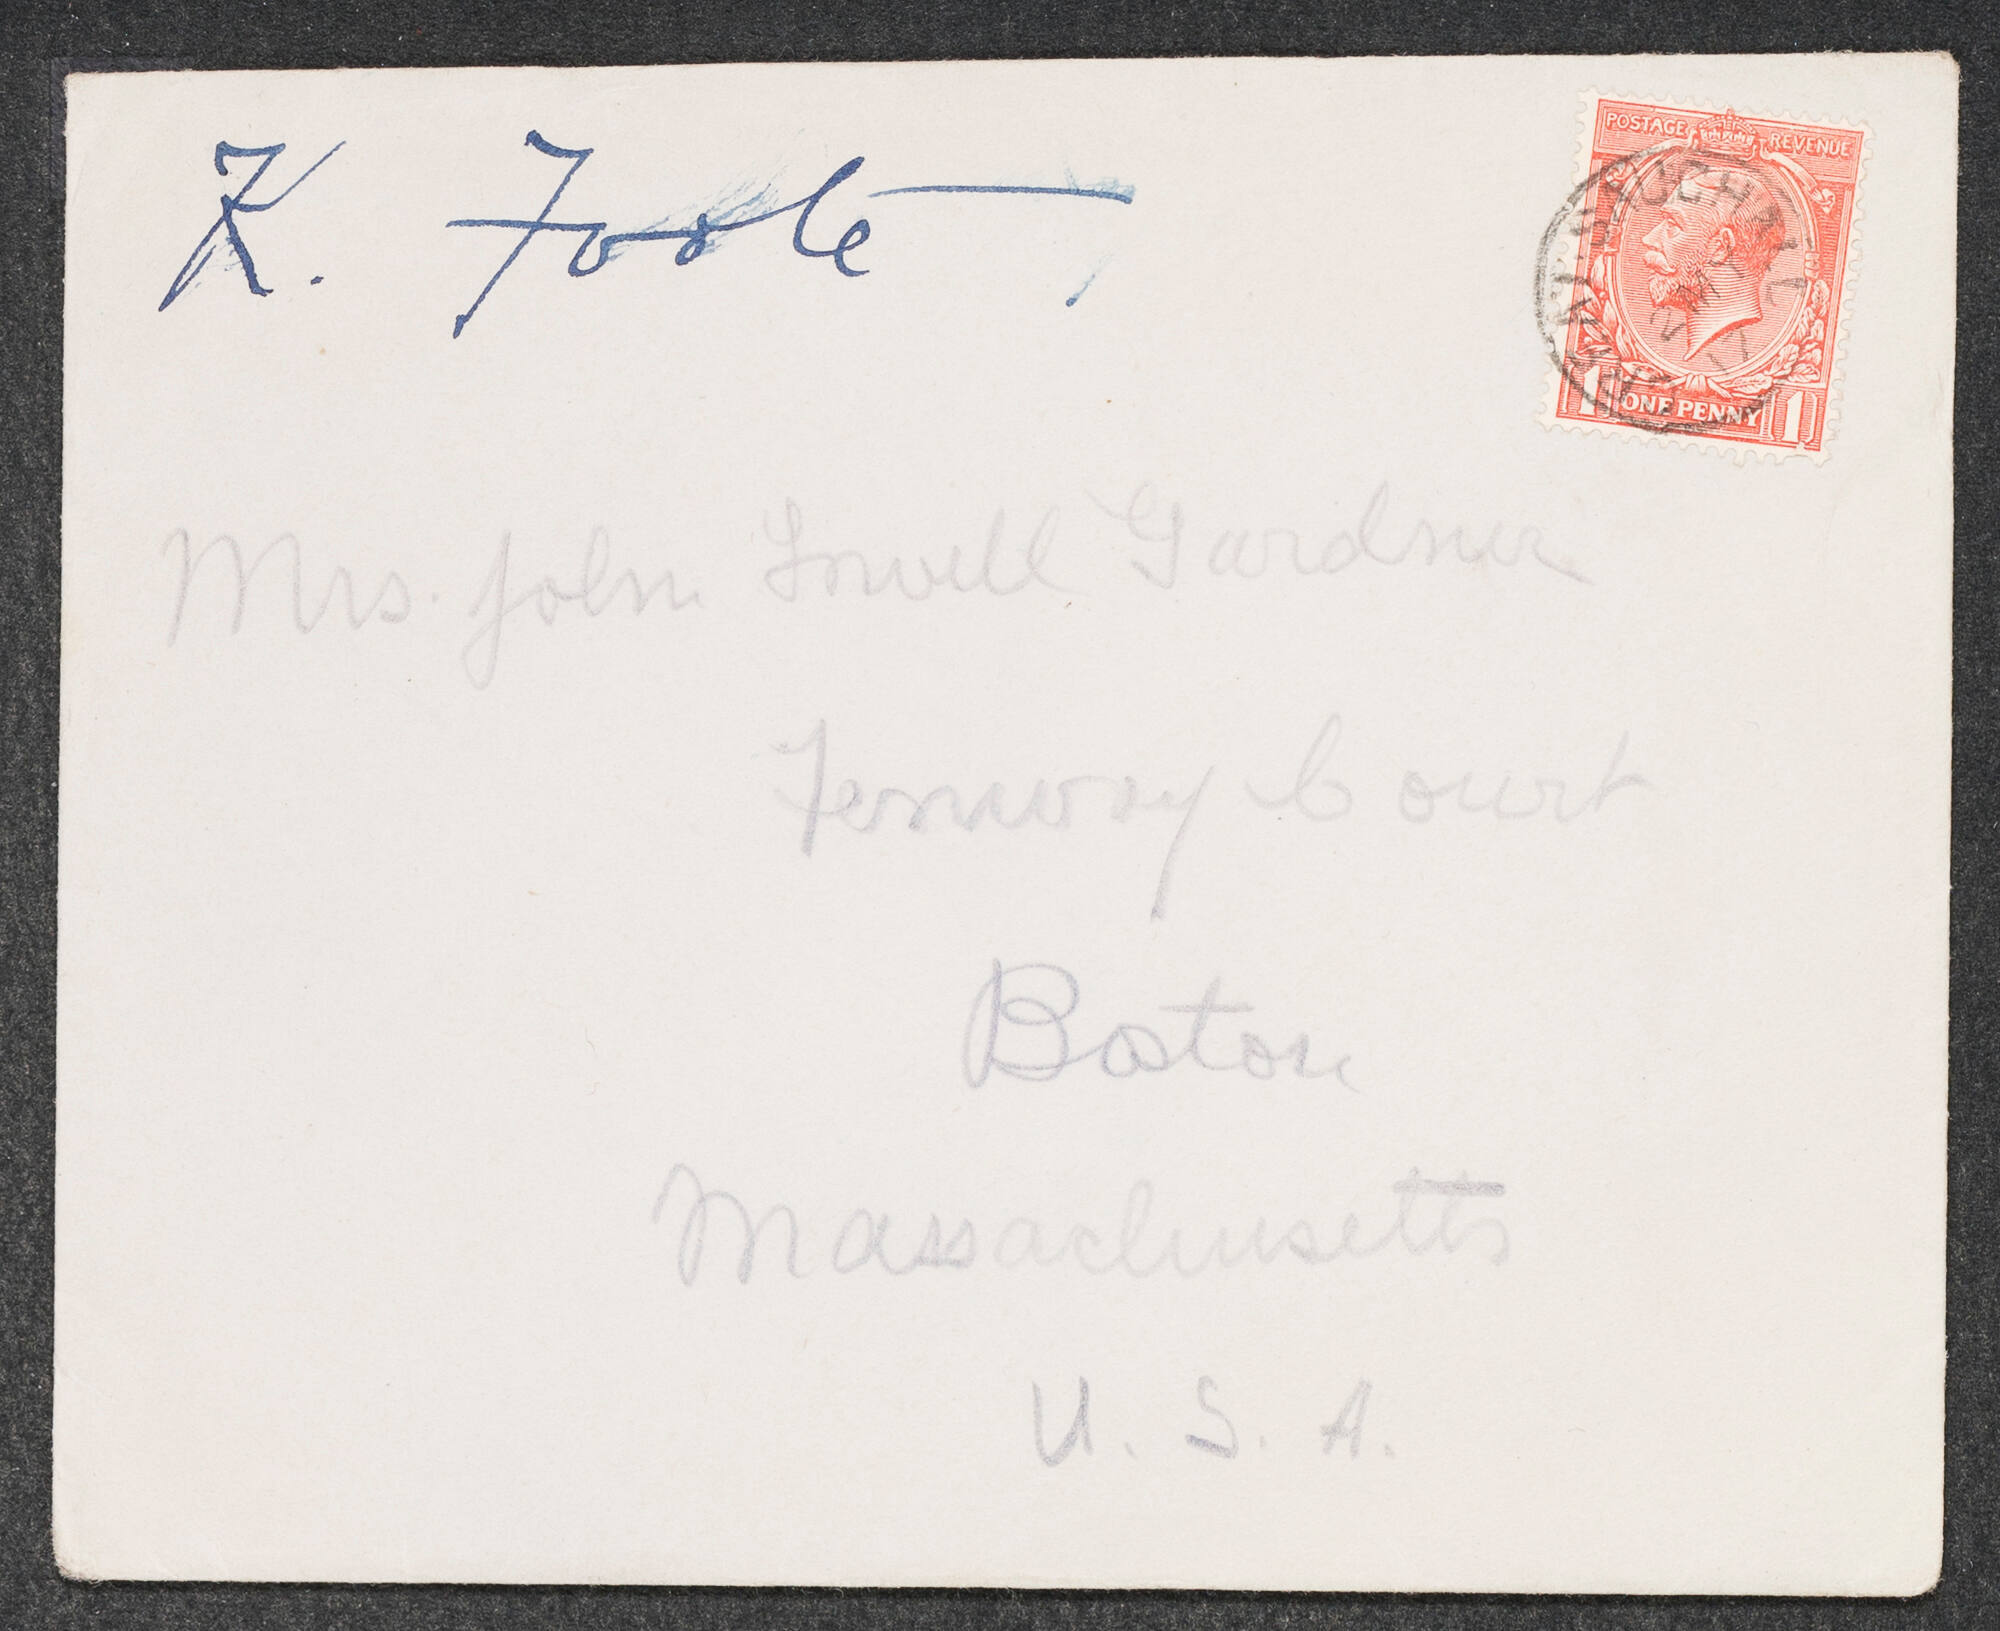 K. Foote
POSTAGE REVENUE
1 ONE PENNY 1
Mrs. John Lowell Gardner
Fenway Court
Boston
Massachusetts
U. S. A.